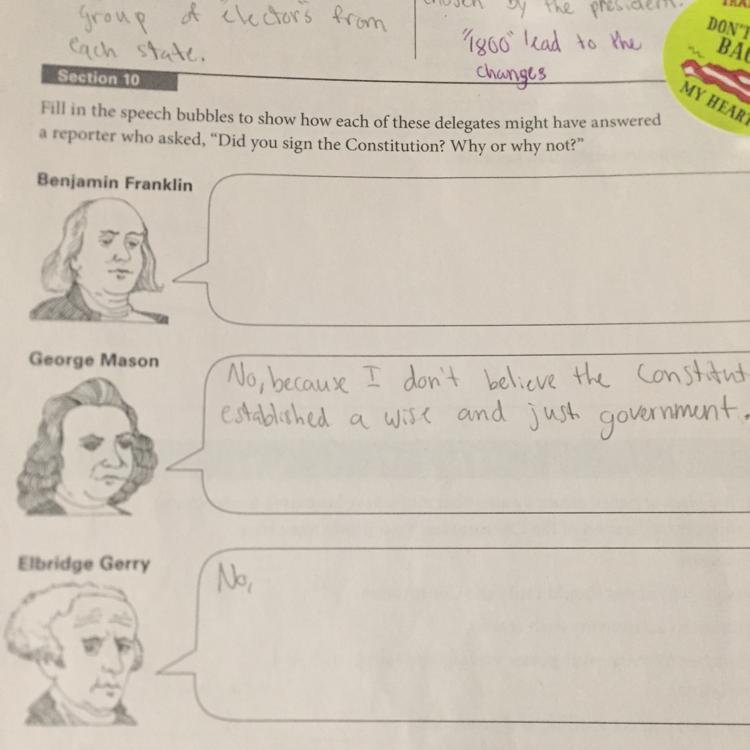 group of electors from
each state.
chosen by the president.
"1800" lead to the
changes
DON'T
MY HEART
Section 10
Fill in the speech bubbles to show how each of these delegates might have answered
a reporter who asked, "Did you sign the Constitution? Why or why not?"
Benjamin Franklin
George Mason
No, because I don't believe the Constitut
established a wise and just government.
Elbridge Gerry
No,